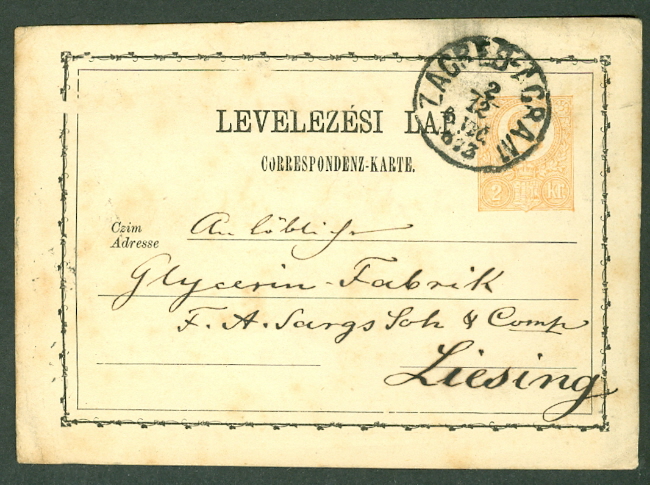 LEVELEZÉSI LAP
CORRESPONDENZ-KARTE.
ZAGREB-AGRAM
2
12
873
2 kr
Czim
Adresse
An löbliche
Glycerin-Fabrik
F. A. Sargs Soh & Comp
Liesing